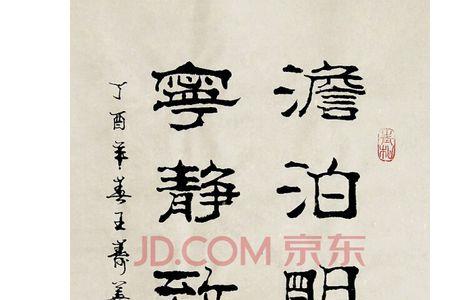 澹泊明
寧静致
丁酉年春王寿
JD.COM 京东